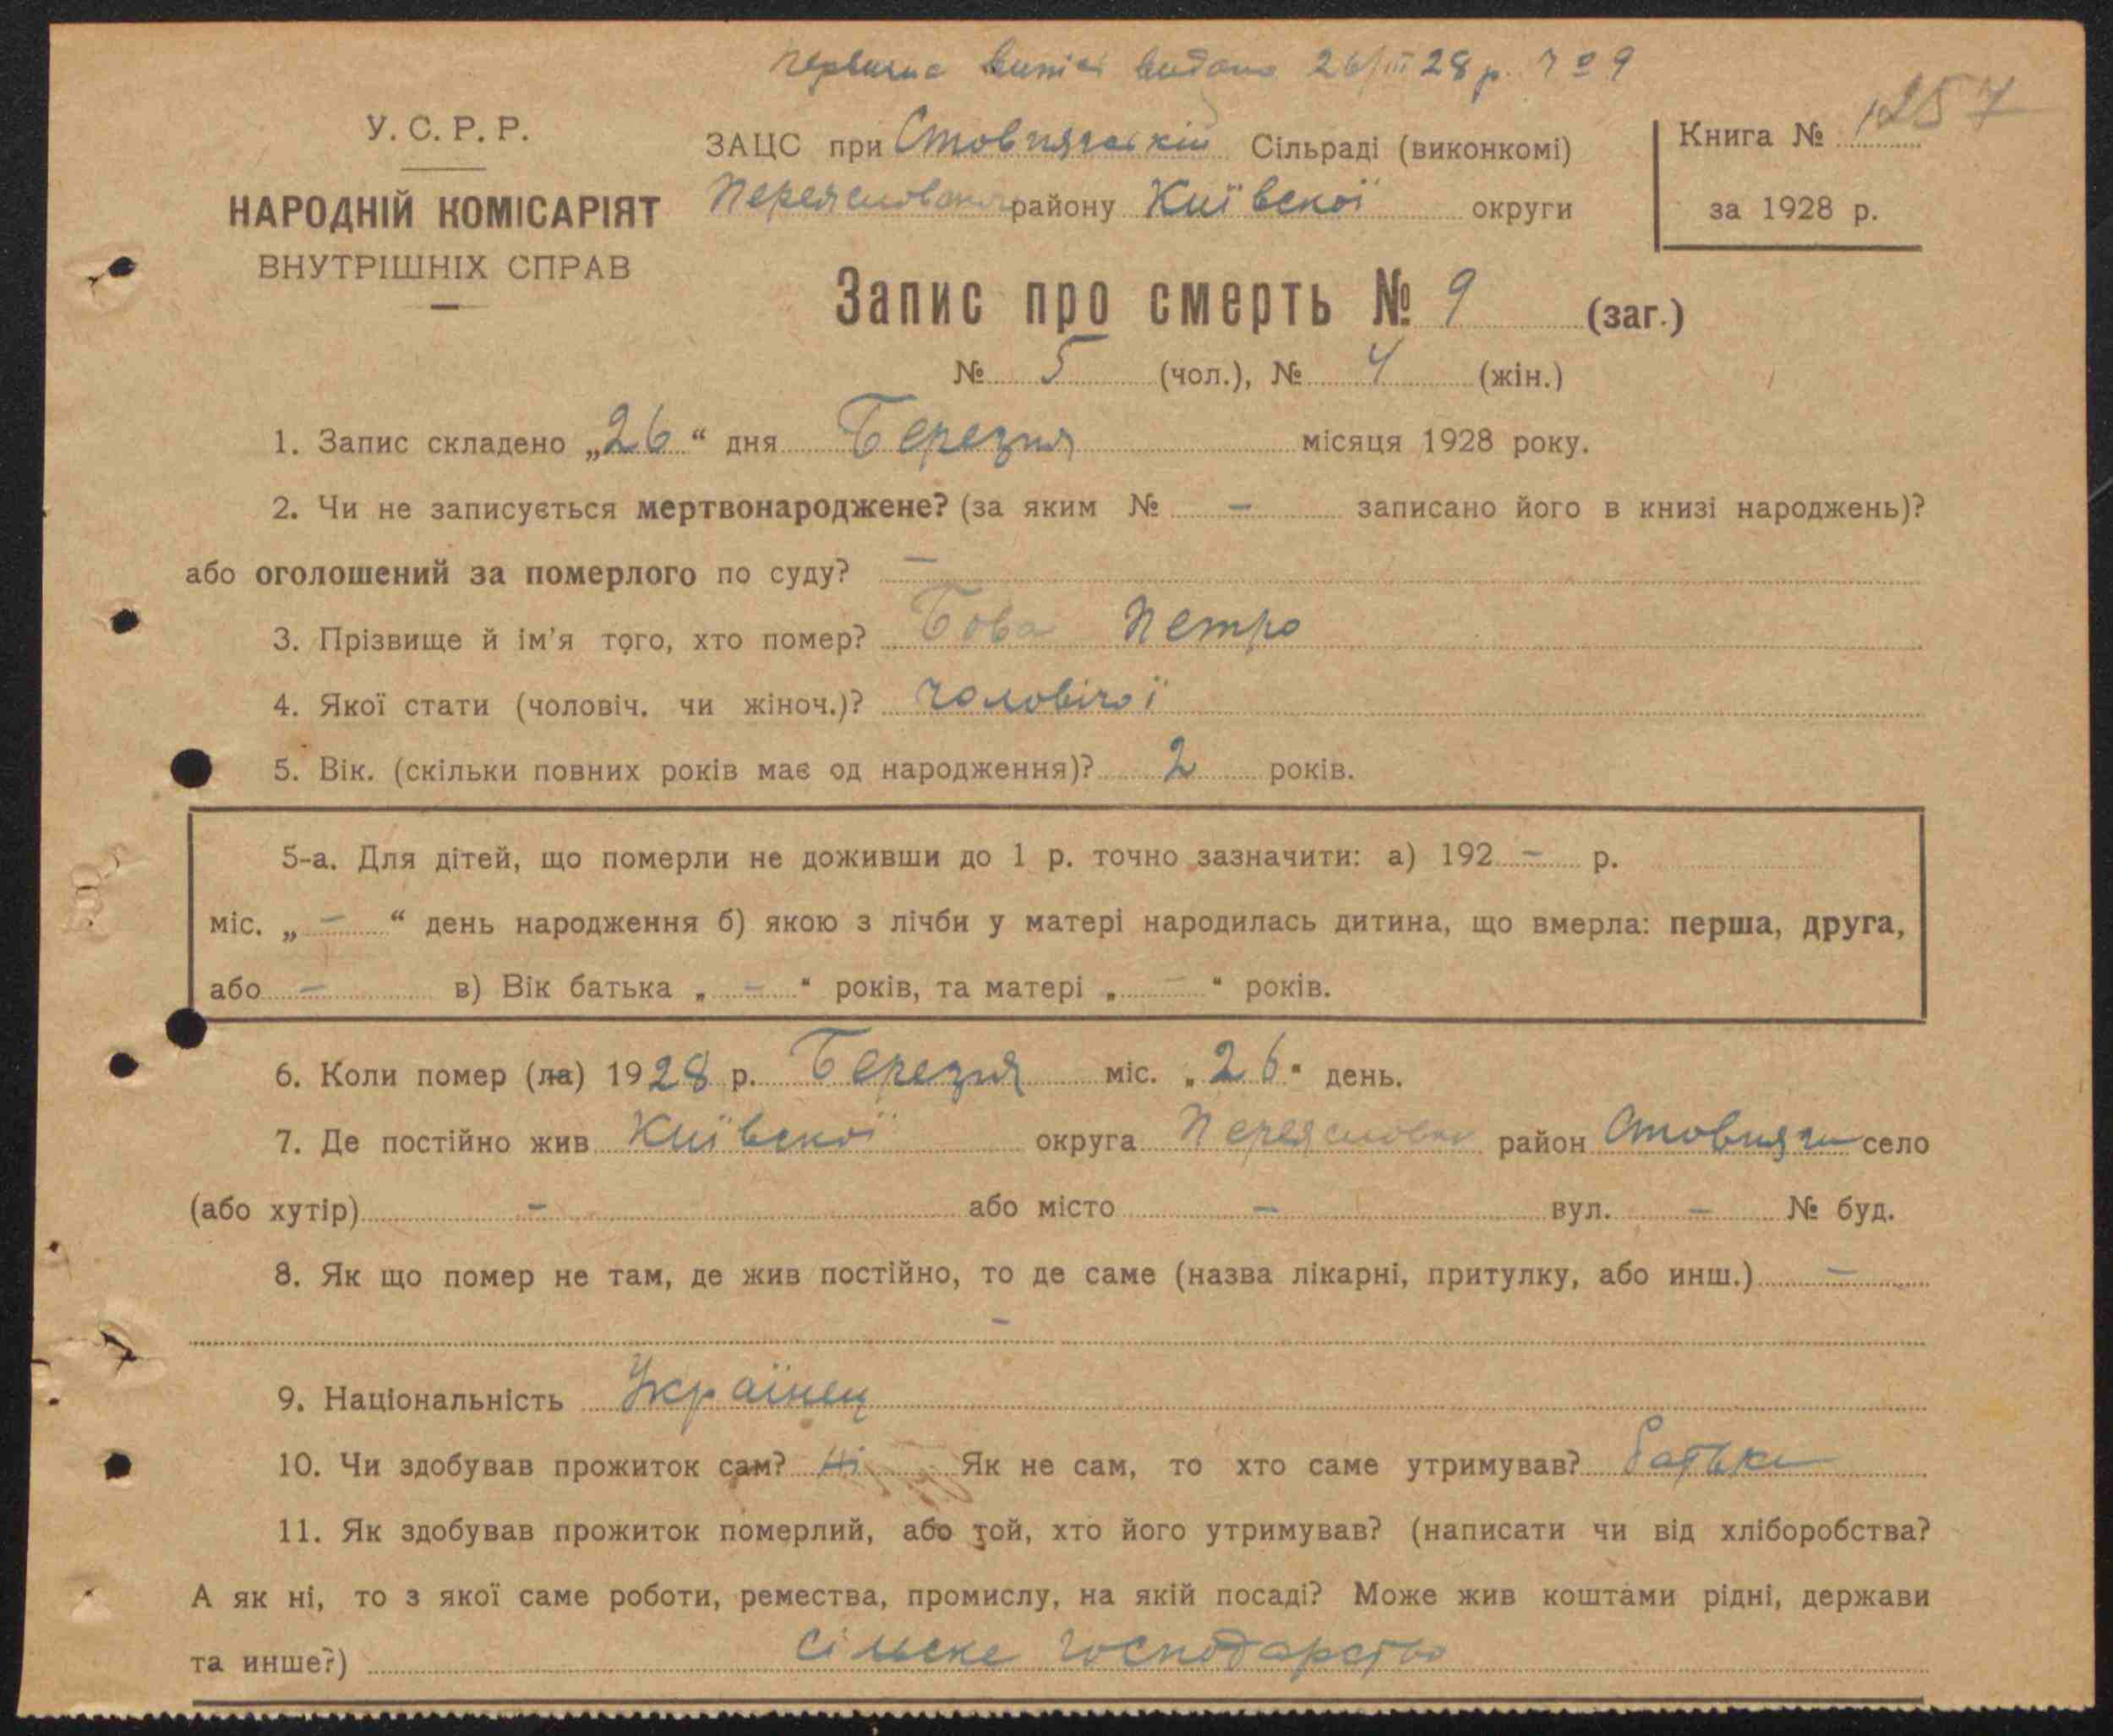 Первична випись видана 26/III 28 р. ч о 9
257
У. С. Р. Р.
НАРОДНІЙ КОМІСАРІЯТ
ВНУТРІШНІХ СПРАВ
ЗАЦС при Стовпязькій Сільраді (виконкомі)
Переяславськ району Київської округи
Книга № 1
за 1928 р.
Запис про смерть № 9 (заг.)
№ 5 (чол.), № 4 (жін.)
1. Запис складено „26“ дня Березня місяця 1928 року.
2. Чи не записується мертвонароджене? (за яким № – записано його в книзі народжень)?
або оголошений за померлого по суду? –
3. Прізвище й ім'я того, хто помер? Бова Петро
4. Якої стати (чоловіч. чи жіноч.)? чоловічої
5. Вік. (скільки повних років має од народження)? 2 років.
5-а. Для дітей, що померли не доживши до 1 р. точно зазначити: а) 192 – р.
міс. „ – “ день народження б) якою з лічби у матері народилась дитина, що вмерла: перша, друга,
або – в) Вік батька „ – “ років, та матері „ – “ років.
6. Коли помер (ла) 1928 р. Березня міс. „26“ день.
7. Де постійно жив Київської округа Переяславськ район Стовпяги село
(або хутір) – або місто – вул. – № буд.
8. Як що помер не там, де жив постійно, то де саме (назва лікарні, притулку, або инш.) –
–
9. Національність Українец
10. Чи здобував прожиток сам? Ні Як не сам, то хто саме утримував? Батьки
11. Як здобував прожиток померлий, або той, хто його утримував? (написати чи від хліборобства?
А як ні, то з якої саме роботи, ремества, промислу, на якій посаді? Може жив коштами рідні, держави
та инше?) сільске господарство